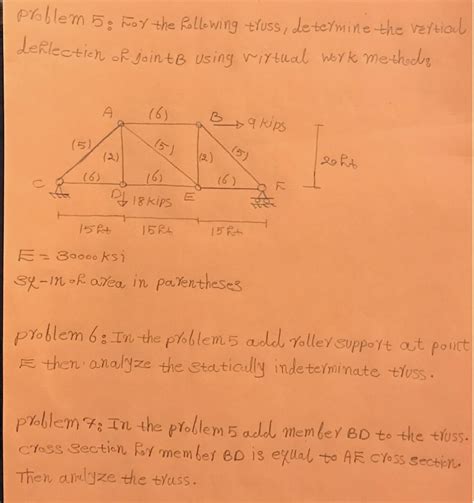 Problem 5: For the following truss, determine the vertical
deflection of joint B using virtual work method.
A (6) B 9 kips
(5) (2) (5) (2) (5) 20 ft
C (6) D (6) E (6) F
18 kips
15 ft 15 ft 15 ft
E = 30000 ksi
sq-in of area in parentheses
problem 6: In the problem 5 add roller support at point
E then analyze the statically indeterminate truss.
problem 7: In the problem 5 add member BD to the truss.
cross section for member BD is equal to AE cross section.
Then analyze the truss.